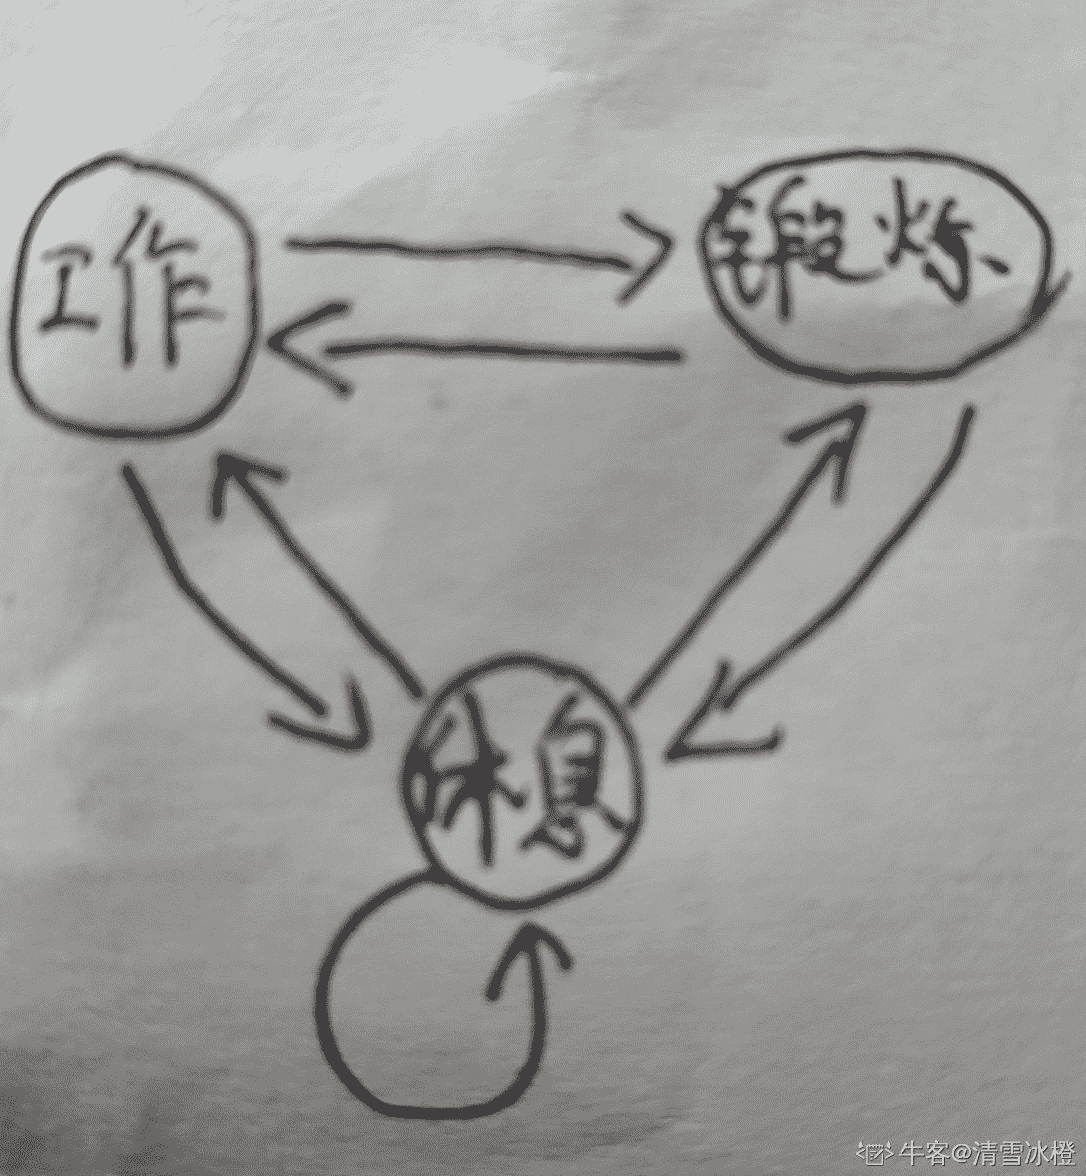 工作
锻炼
休息
牛客@清雪冰橙